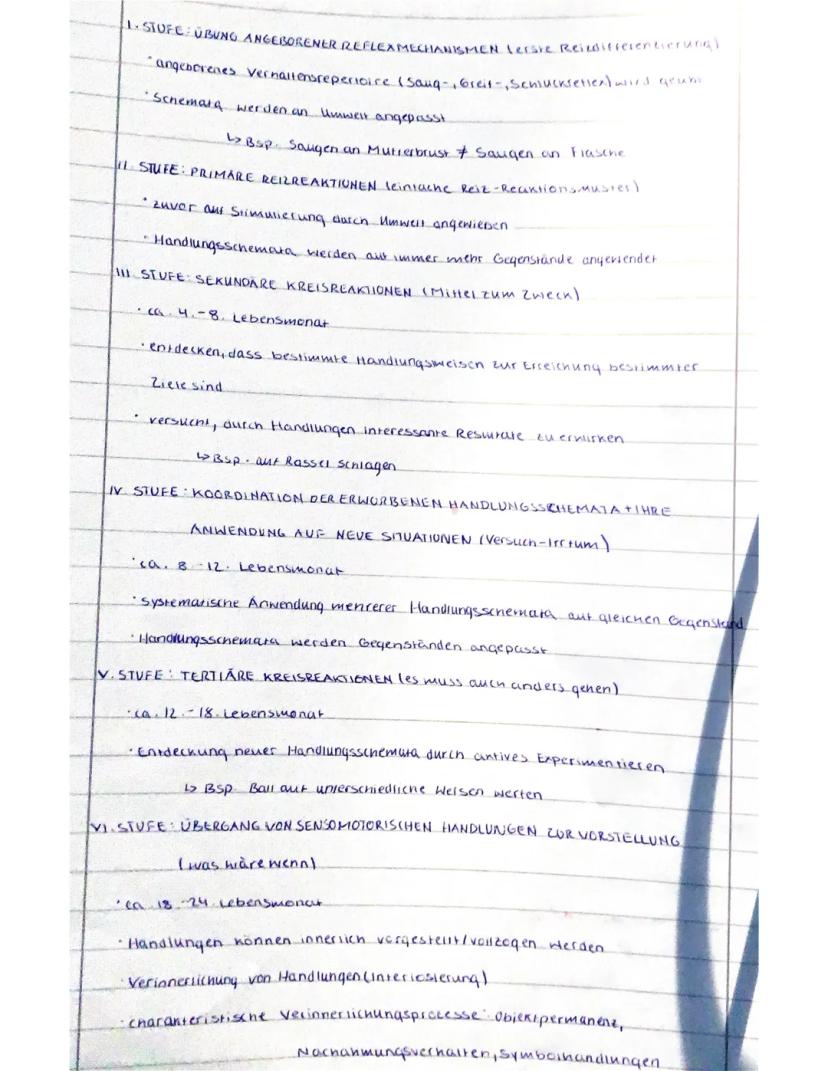 I. STUFE: ÜBUNG ANGEBORENER REFLEXMECHANISMEN (erste Reizdifferenzierung)
· angeborenes Verhaltensrepertoire (Saug-, Greif-, Schluckreflex) wird geübt
· Schemata werden an Umwelt angepasst
↳ Bsp. Saugen an Mutterbrust ≠ Saugen an Flasche
II. STUFE: PRIMÄRE REIZREAKTIONEN (einfache Reiz-Reaktionsmuster)
· zuvor auf Stimulierung durch Umwelt angewiesen
· Handlungsschemata werden auf immer mehr Gegenstände angewendet
III. STUFE: SEKUNDÄRE KREISREAKTIONEN (Mittel zum Zweck)
· ca. 4.-8. Lebensmonat
· entdecken, dass bestimmte Handlungsweisen zur Erreichung bestimmter
Ziele sind
· versucht, durch Handlungen interessante Resultate zu erwirken
↳ Bsp. auf Rassel schlagen
IV. STUFE: KOORDINATION DER ERWORBENEN HANDLUNGSSCHEMATA + IHRE
ANWENDUNG AUF NEUE SITUATIONEN (Versuch-Irrtum)
· ca. 8.-12. Lebensmonat
· systematische Anwendung mehrerer Handlungsschemata auf gleichen Gegenstand
· Handlungsschemata werden Gegenständen angepasst
V. STUFE: TERTIÄRE KREISREAKTIONEN (es muss auch anders gehen)
· ca. 12.-18. Lebensmonat
· Entdeckung neuer Handlungsschemata durch aktives Experimentieren
↳ Bsp. Ball auf unterschiedliche Weisen werfen
VI. STUFE: ÜBERGANG VON SENSOMOTORISCHEN HANDLUNGEN ZUR VORSTELLUNG
(was wäre wenn)
· ca. 18.-24. Lebensmonat
· Handlungen können innerlich vorgestellt/vollzogen werden
· Verinnerlichung von Handlungen (Interiosierung)
· charakteristische Verinnerlichungsprozesse: Objektpermanenz,
Nachahmungsverhalten, Symbolhandlungen